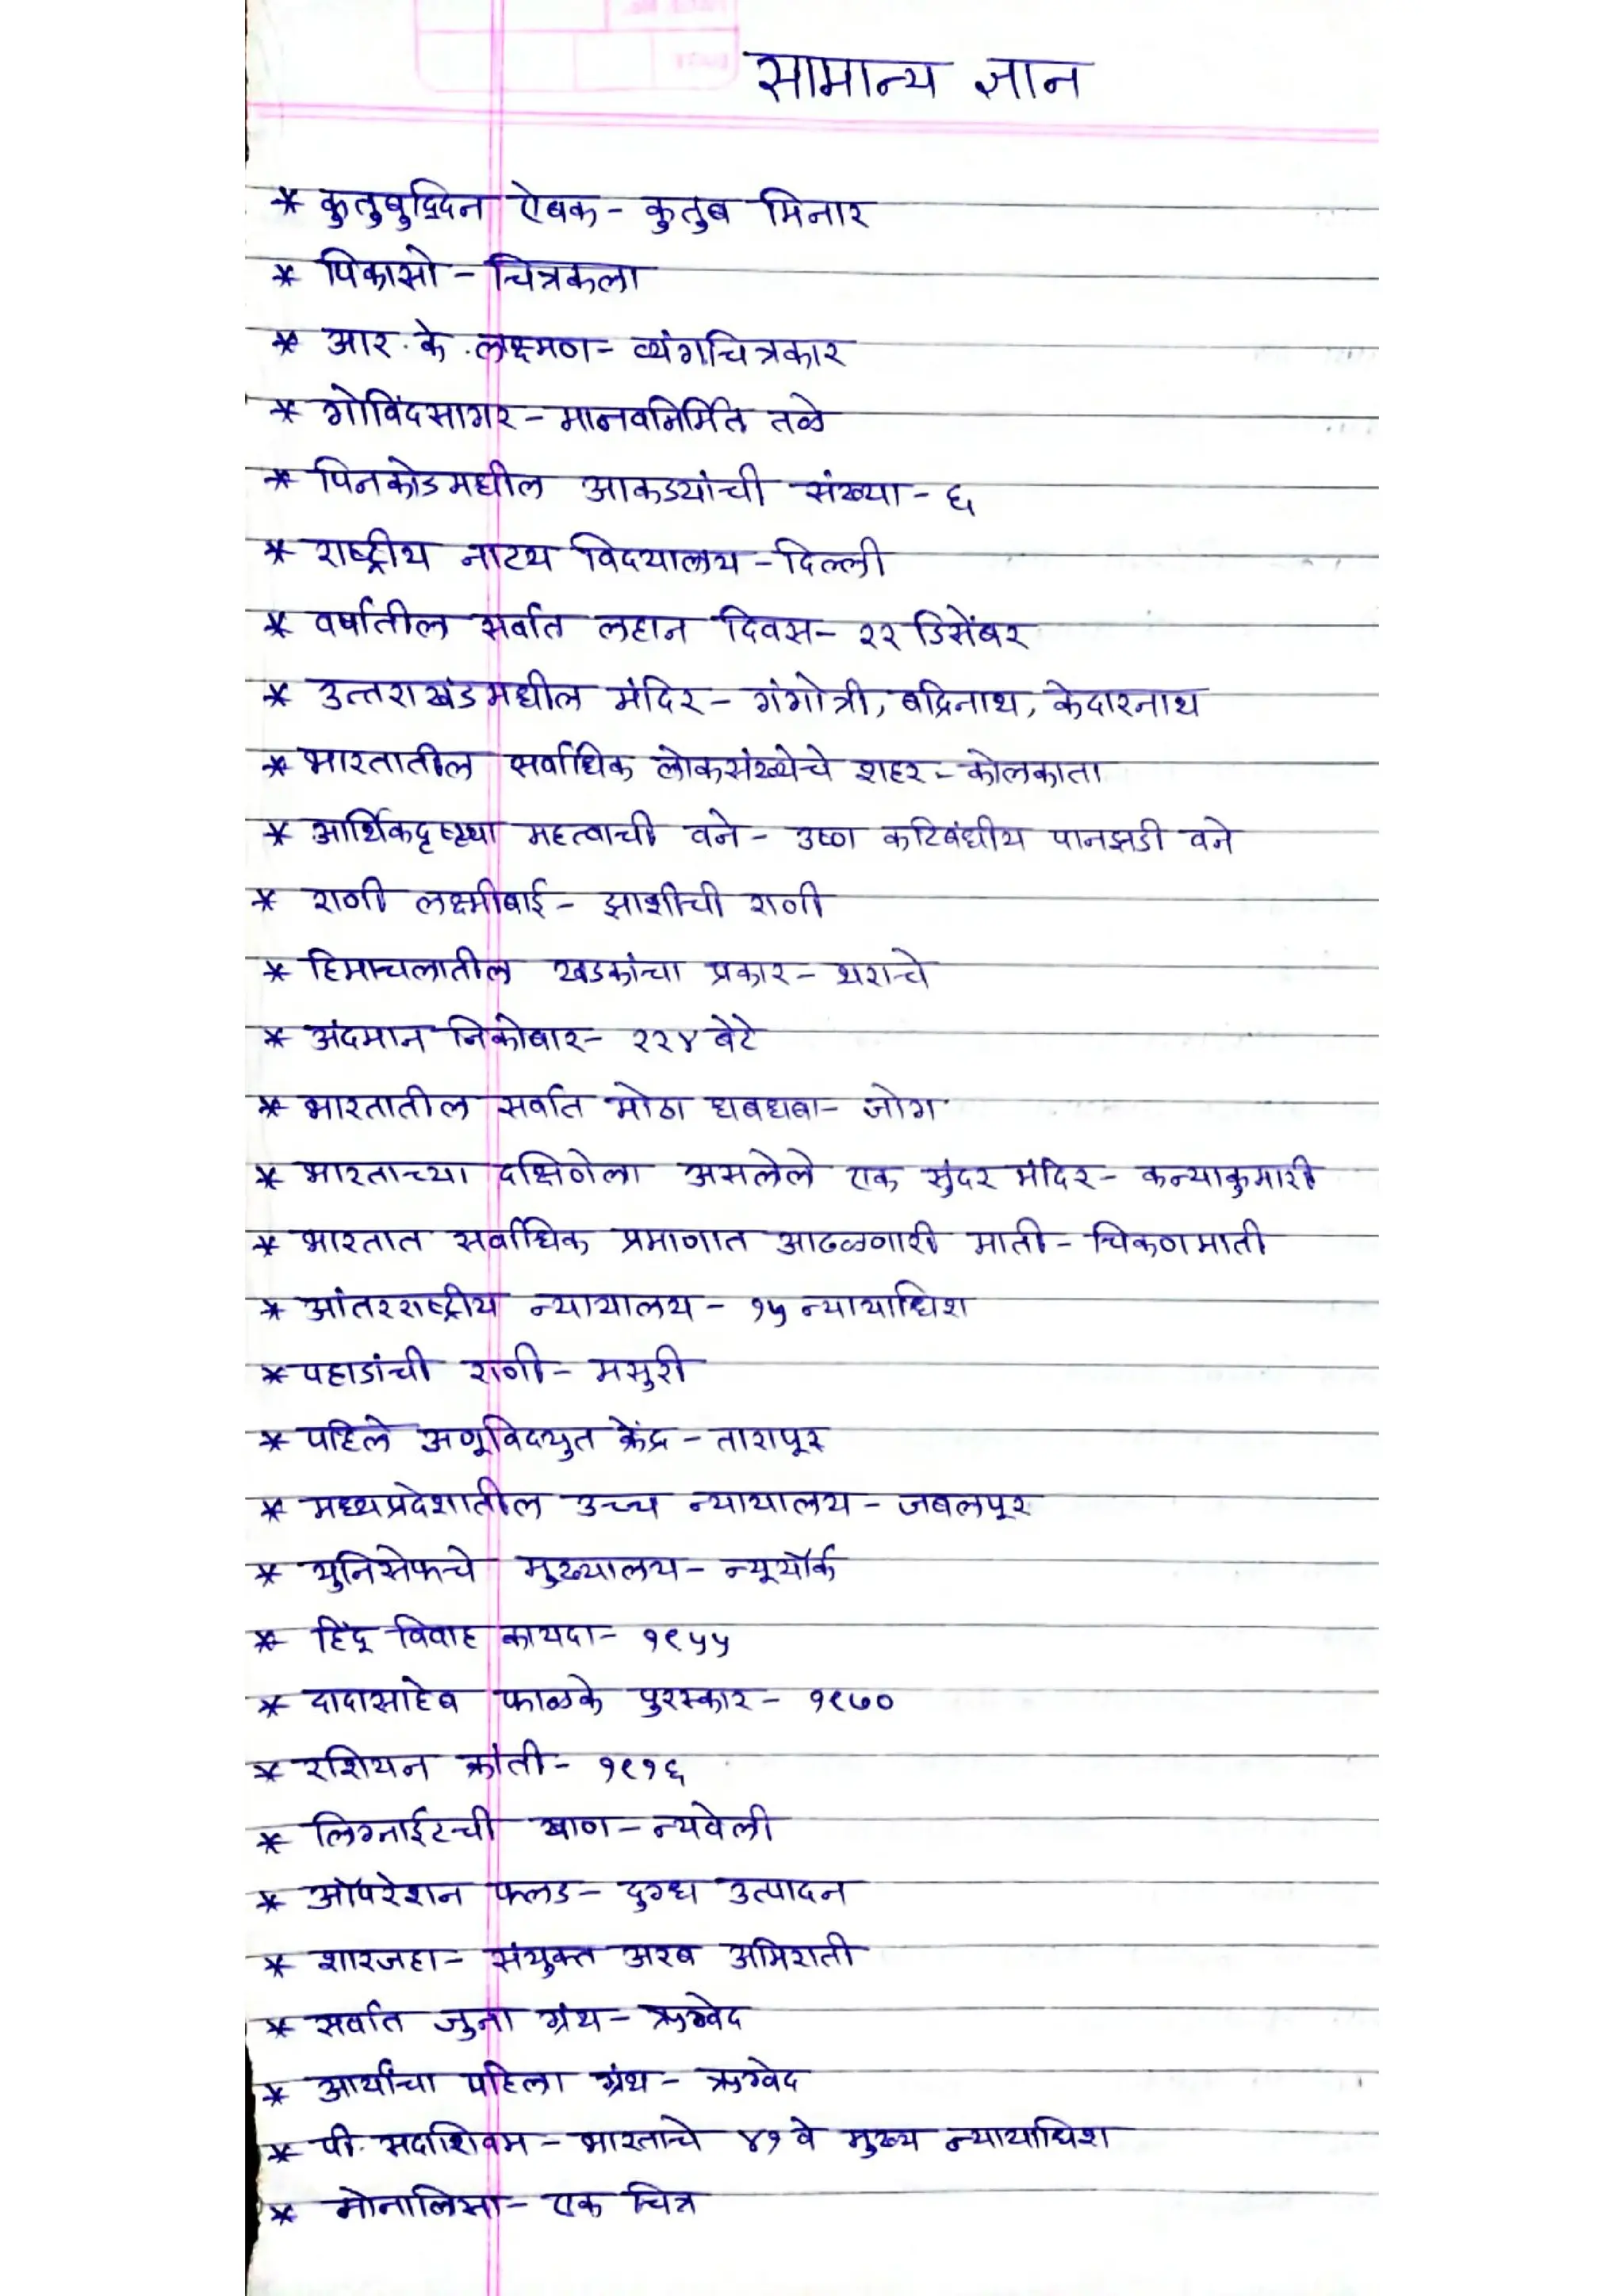 सामान्य ज्ञान
* कुतुबुद्दिन ऐबक - कुतुब मिनार
* पिकासो - चित्रकला
* आर. के. लक्ष्मण - व्यंगचित्रकार
* गोविंदसागर - मानवनिर्मित तळे
* पिनकोडमधील आकडयांची संख्या - ६
* राष्ट्रीय नाटय विदयालय - दिल्ली
* वर्षातील सर्वात लहान दिवस - २२ डिसेंबर
* उत्तराखंडमधील मंदिर - गंगोत्री, बद्रिनाथ, केदारनाथ
* भारतातील सर्वाधिक लोकसंख्येचे शहर - कोलकाता
* आर्थिकदृष्ट्या महत्वाची वने - उष्ण कटिबंधीय पानझडी वने
* राणी लक्ष्मीबाई - झाशीची राणी
* हिमाचलातील खडकांचा प्रकार - थराचे
* अंदमान निकोबार - २२४ बेटे
* भारतातील सर्वात मोठा धबधबा - जोग
* भारताच्या दक्षिणेला असलेले एक सुंदर मंदिर - कन्याकुमारी
* भारतात सर्वाधिक प्रमाणात आढळणारी माती - चिकणमाती
* आंतरराष्ट्रीय न्यायालय - १५ न्यायाधिश
* पहाडांची राणी - मसुरी
* पहिले अणूविदयुत केंद्र - तारापूर
* मध्यप्रदेशातील उच्च न्यायालय - जबलपूर
* युनिसेफचे मुख्यालय - न्यूयॉर्क
* हिंदू विवाह कायदा - १९५५
* दादासाहेब फाळके पुरस्कार - १९७०
* रशियन क्रांती - १९१६
* लिग्नाईटची खाण - न्यवेली
* ऑपरेशन फ्लड - दुग्ध उत्पादन
* शारजहा - संयुक्त अरब अमिराती
* सर्वात जुना ग्रंथ - ऋग्वेद
* आर्यांचा पहिला ग्रंथ - ऋग्वेद
* पी. सदाशिवम - भारताचे ४१ वे मुख्य न्यायाधिश
* मोनालिसा - एक चित्र